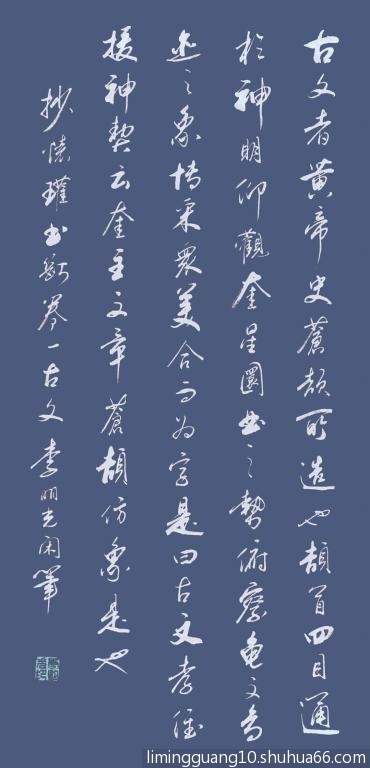 古文者黄帝史蒼頡所造也頡首四目通
於神明仰觀奎星圜曲之勢俯察龜文鳥
迹之象博采眾美合而为字是曰古文孝經
援神契云奎主文章蒼頡仿象是也
抄懷瓘書斷卷一古文李明光闲筆
limingguang10.shuhua66.com